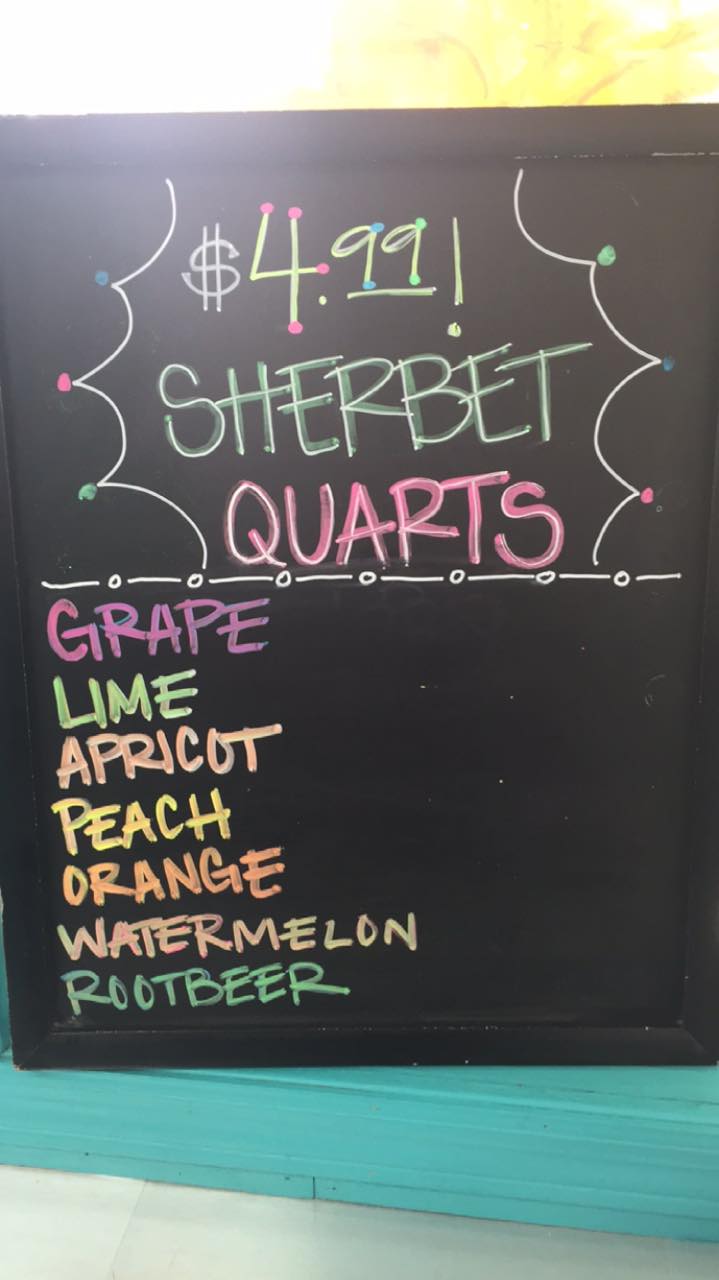 $4.99!
SHERBET
QUARTS
GRAPE
LIME
APRICOT
PEACH
ORANGE
WATERMELON
ROOTBEER